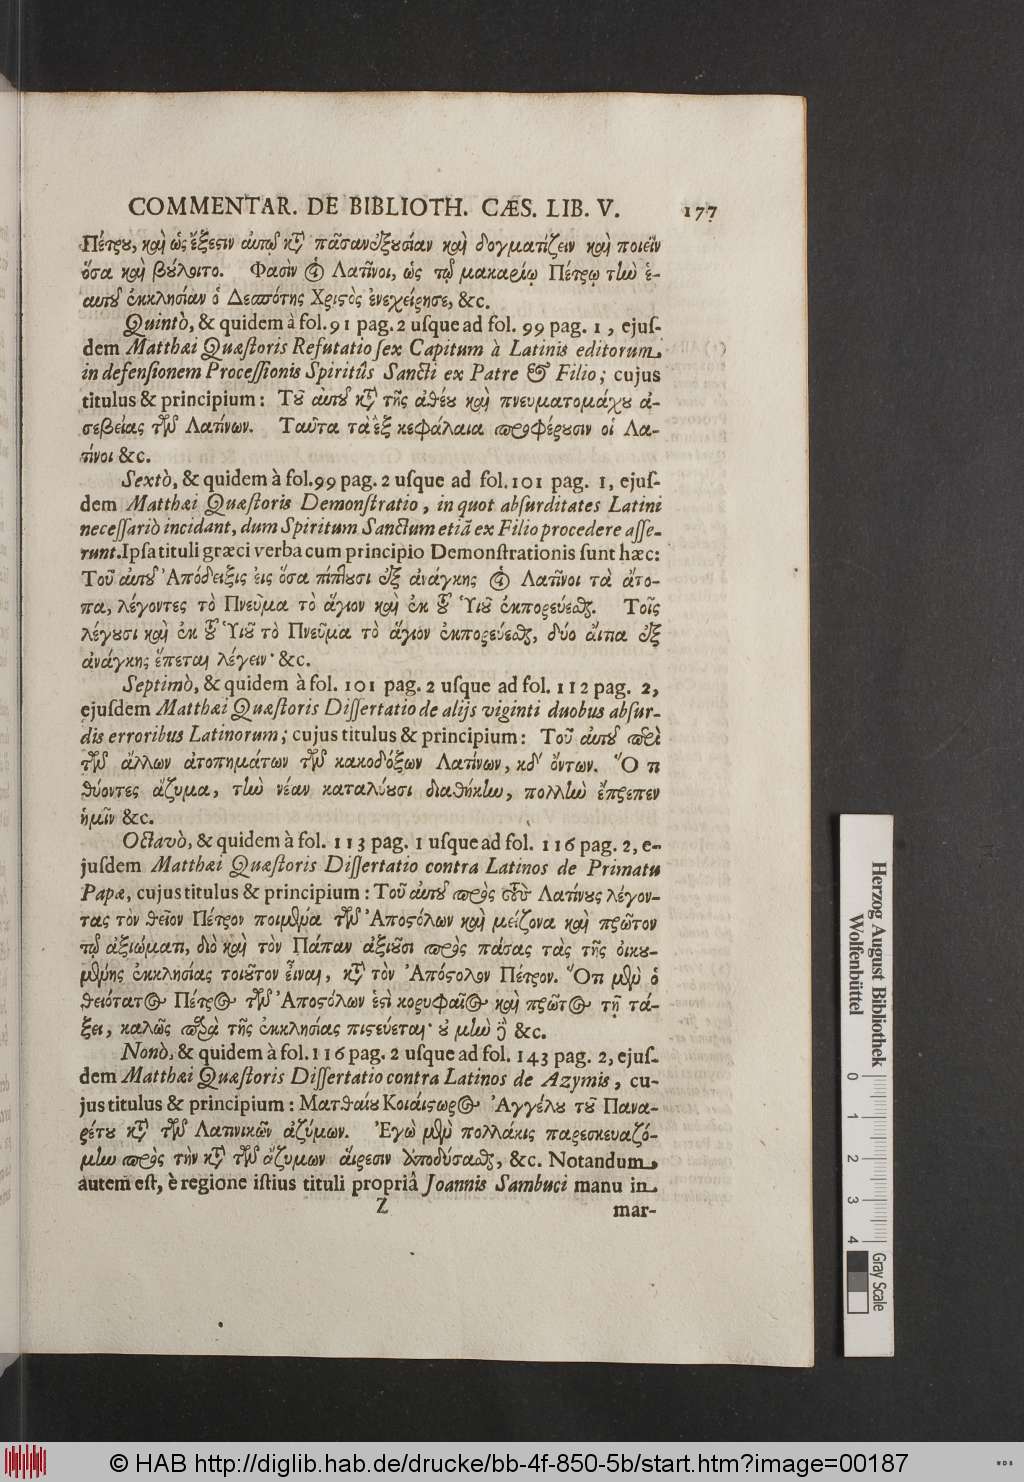 COMMENTAR. DE BIBLIOTH. CÆS. LIB. V. 177
Πέτρου, καὶ ὡς ἔξεστιν αὐτῷ κατὰ πᾶσαν ἐξουσίαν καὶ δογματίζειν καὶ ποιεῖν
ὅσα καὶ βούλοιτο. Φασὶν οἱ Λατῖνοι, ὡς τῷ μακαρίῳ Πέτρῳ τὴν ἑ-
αυτοῦ ἐκκλησίαν ὁ Δεσπότης Χριστὸς ἐνεχείρησε, &c.
Quintò, & quidem à fol. 91 pag. 2 uſque ad fol. 99 pag. 1, ejuſ-
dem Matthæi Quæſtoris Refutatio ſex Capitum à Latinis editorum
in defenſionem Proceſſionis Spiritûs Sancti ex Patre & Filio; cujus
titulus & principium: Τοῦ αὐτοῦ κατὰ τῆς ἀθέου καὶ πνευματομάχου ἀ-
σεβείας τῶν Λατίνων. Ταῦτα τὰ ἓξ κεφάλαια προφέρουσιν οἱ Λα-
τίνοι &c.
Sextò, & quidem à fol. 99 pag. 2 uſque ad fol. 101 pag. 1, ejuſ-
dem Matthæi Quæſtoris Demonſtratio, in quot abſurditates Latini
neceſſariò incidant, dum Spiritum Sanctum etiã ex Filio procedere aſſe-
runt. Ipſa tituli græci verba cum principio Demonſtrationis ſunt hæc:
Τοῦ αὐτοῦ Ἀπόδειξις εἰς ὅσα πίπτουσι ἐξ ἀνάγκης οἱ Λατῖνοι τὰ ἄτο-
πα, λέγοντες τὸ Πνεῦμα τὸ ἅγιον καὶ ἐκ τοῦ Ὑιοῦ ἐκπορεύεσθαι. Τοῖς
λέγουσι καὶ ἐκ τοῦ Ὑιοῦ τὸ Πνεῦμα τὸ ἅγιον ἐκπορεύεσθαι, δύο αἴτια ἐξ
ἀνάγκης ἕπεται λέγειν· &c.
Septimò, & quidem à fol. 101 pag. 2 uſque ad fol. 112 pag. 2,
ejuſdem Matthæi Quæſtoris Diſſertatio de alijs viginti duobus abſur-
dis erroribus Latinorum; cujus titulus & principium: Τοῦ αὐτοῦ περὶ
τῶν ἄλλων ἀτοπημάτων τῶν κακοδόξων Λατίνων, κδʹ ὄντων. Ὅτι
θύοντες ἄζυμα, τὴν νέαν καταλύουσι διαθήκην, πολλὴν ἔπρεπεν
ἡμῖν &c.
Octavò, & quidem à fol. 113 pag. 1 uſque ad fol. 116 pag. 2, e-
juſdem Matthæi Quæſtoris Diſſertatio contra Latinos de Primatu
Papæ, cujus titulus & principium: Τοῦ αὐτοῦ πρὸς τοὺς Λατίνους λέγον-
τας τὸν θεῖον Πέτρον ποιμένα τῶν Ἀποστόλων καὶ μείζονα καὶ πρῶτον
τῷ ἀξιώματι, διὸ καὶ τὸν Πάπαν ἀξιοῦσι πρὸς πάσας τὰς τῆς οἰκου-
μένης ἐκκλησίας τοιοῦτον εἶναι, κατὰ τὸν Ἀπόστολον Πέτρον. Ὅτι μὲν ὁ
θειότατος Πέτρος τῶν Ἀποστόλων ἐστὶ κορυφαῖος καὶ πρῶτος τῇ τά-
ξει, καλῶς παρὰ τῆς ἐκκλησίας πιστεύεται· οὐ μὴν δὲ &c.
Nonò, & quidem à fol. 116 pag. 2 uſque ad fol. 143 pag. 2, ejuſ-
dem Matthæi Quæſtoris Diſſertatio contra Latinos de Azymis, cu-
jus titulus & principium: Ματθαίου Κοιάιστωρος Ἀγγέλου τοῦ Πανα-
ρέτου κατὰ τῶν Λατινικῶν ἀζύμων. Ἐγὼ μὲν πολλάκις παρεσκευαζό-
μην πρὸς τὴν κατὰ τῶν ἀζύμων αἵρεσιν ἀποδύσασθαι, &c. Notandum
autem eſt, è regione iſtius tituli propriâ Joannis Sambuci manu in
Z mar-
Herzog August Bibliothek
Wolfenbüttel
0 1 2 3 4
Gray Scale
© HAB http://diglib.hab.de/drucke/bb-4f-850-5b/start.htm?image=00187